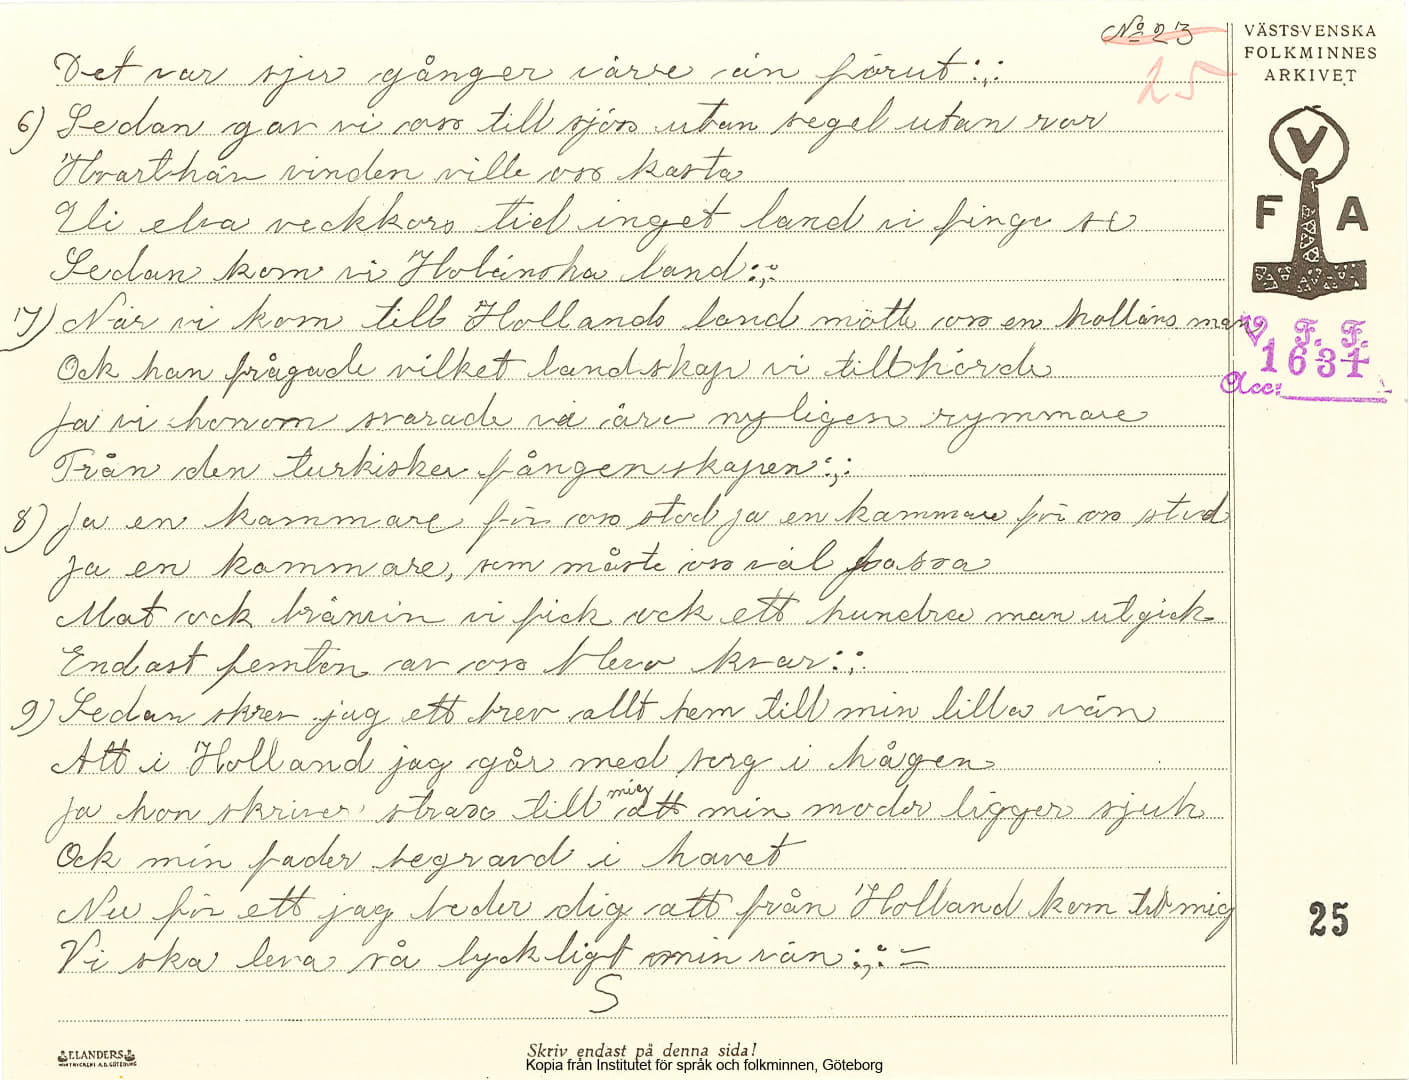 No 23
25
VÄSTSVENSKA
FOLKMINNES
ARKIVET
V
F A
Det var sju gånger värre än förut :,:
6) Sedan gav vi oss till sjös utan segel utan ror
Hvarthän vinden ville oss kasta
Uti elva veckkors tid inget land vi finge se
Sedan kom vi Holänska land :,:
7) När vi kom till Hollands land mötte oss en holläns man
Ock han frågade vilket landskap vi tillhörde
Ja vi honom svarade va äre nyligen rymmare
Från den turkiska fångenskapen :,:
8) Ja en kammare för oss stod ja en kammare för oss stod
Ja en kammare, som måste oss väl passa
Mat ock bränvin vi fick ock ett hundra man utgick
Endast femton av oss blev kvar :,:
9) Sedan skrev jag ett brev allt hem till min lilla vän
Att i Holland jag går med sorg i hågen
Ja hon skriver strax till mig att min moder ligger sjuk
Ock min fader begravd i havet
Nu för ett jag beder dig att från Holland kom till mig
Vi ska leva så lyckligt min vän :,: =
S
V. F. F.
1631
Acc:
25
ELANDERS
Skriv endast på denna sida!
Kopia från Institutet för språk och folkminnen, Göteborg